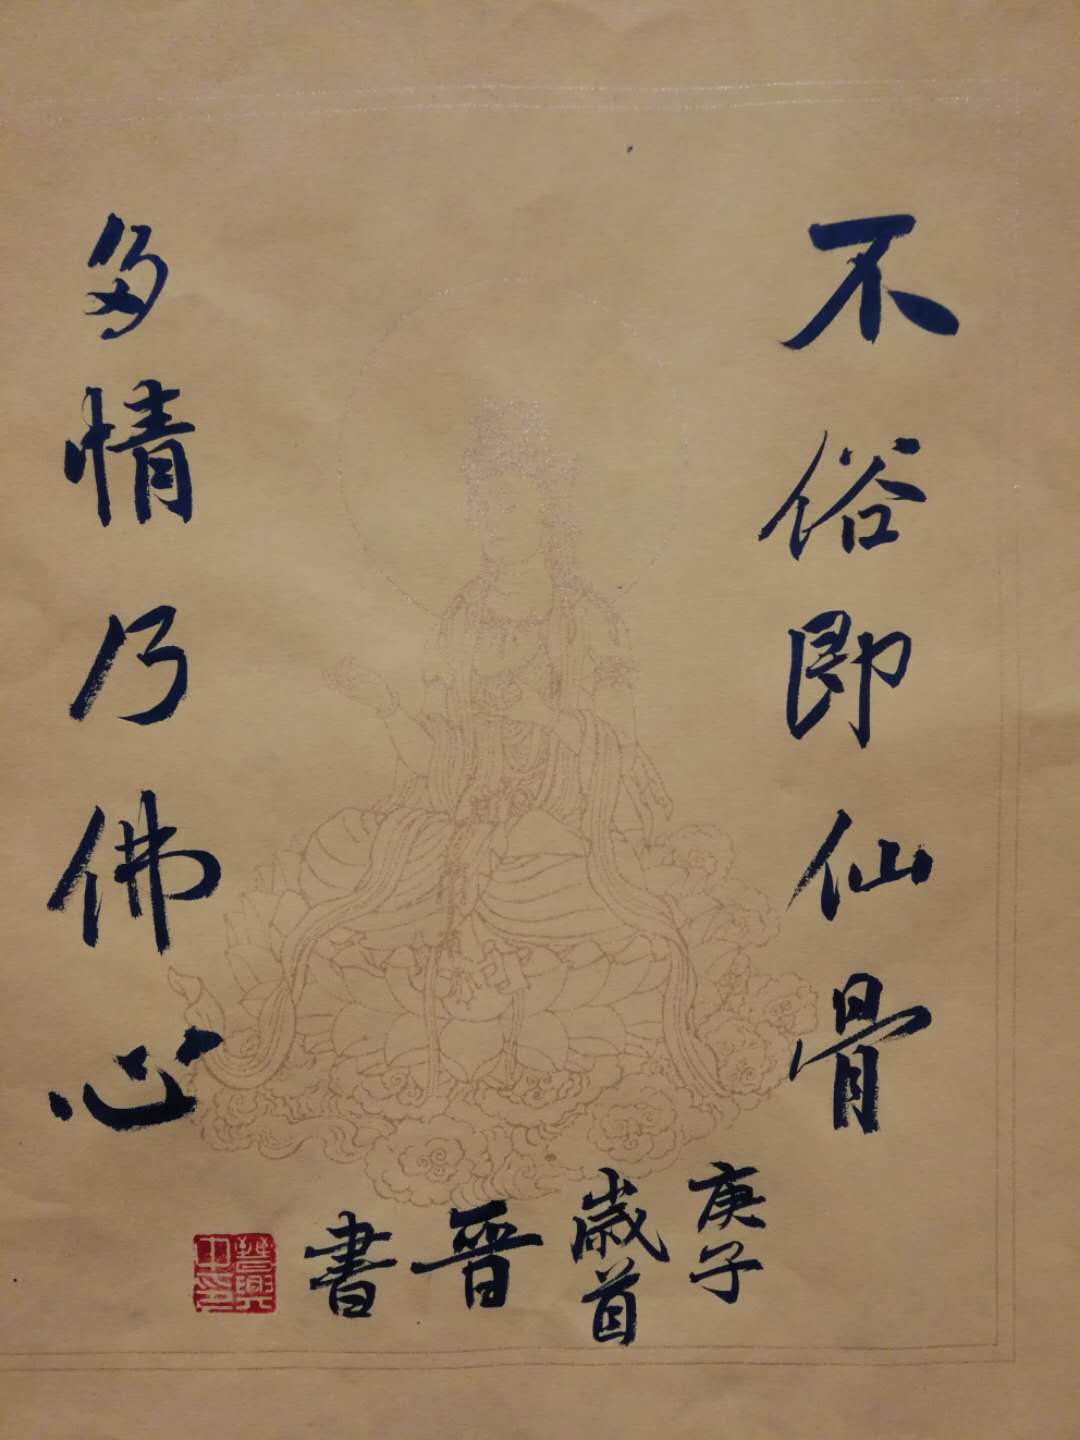 不俗即仙骨
多情乃佛心
庚子
歲首
晉
書